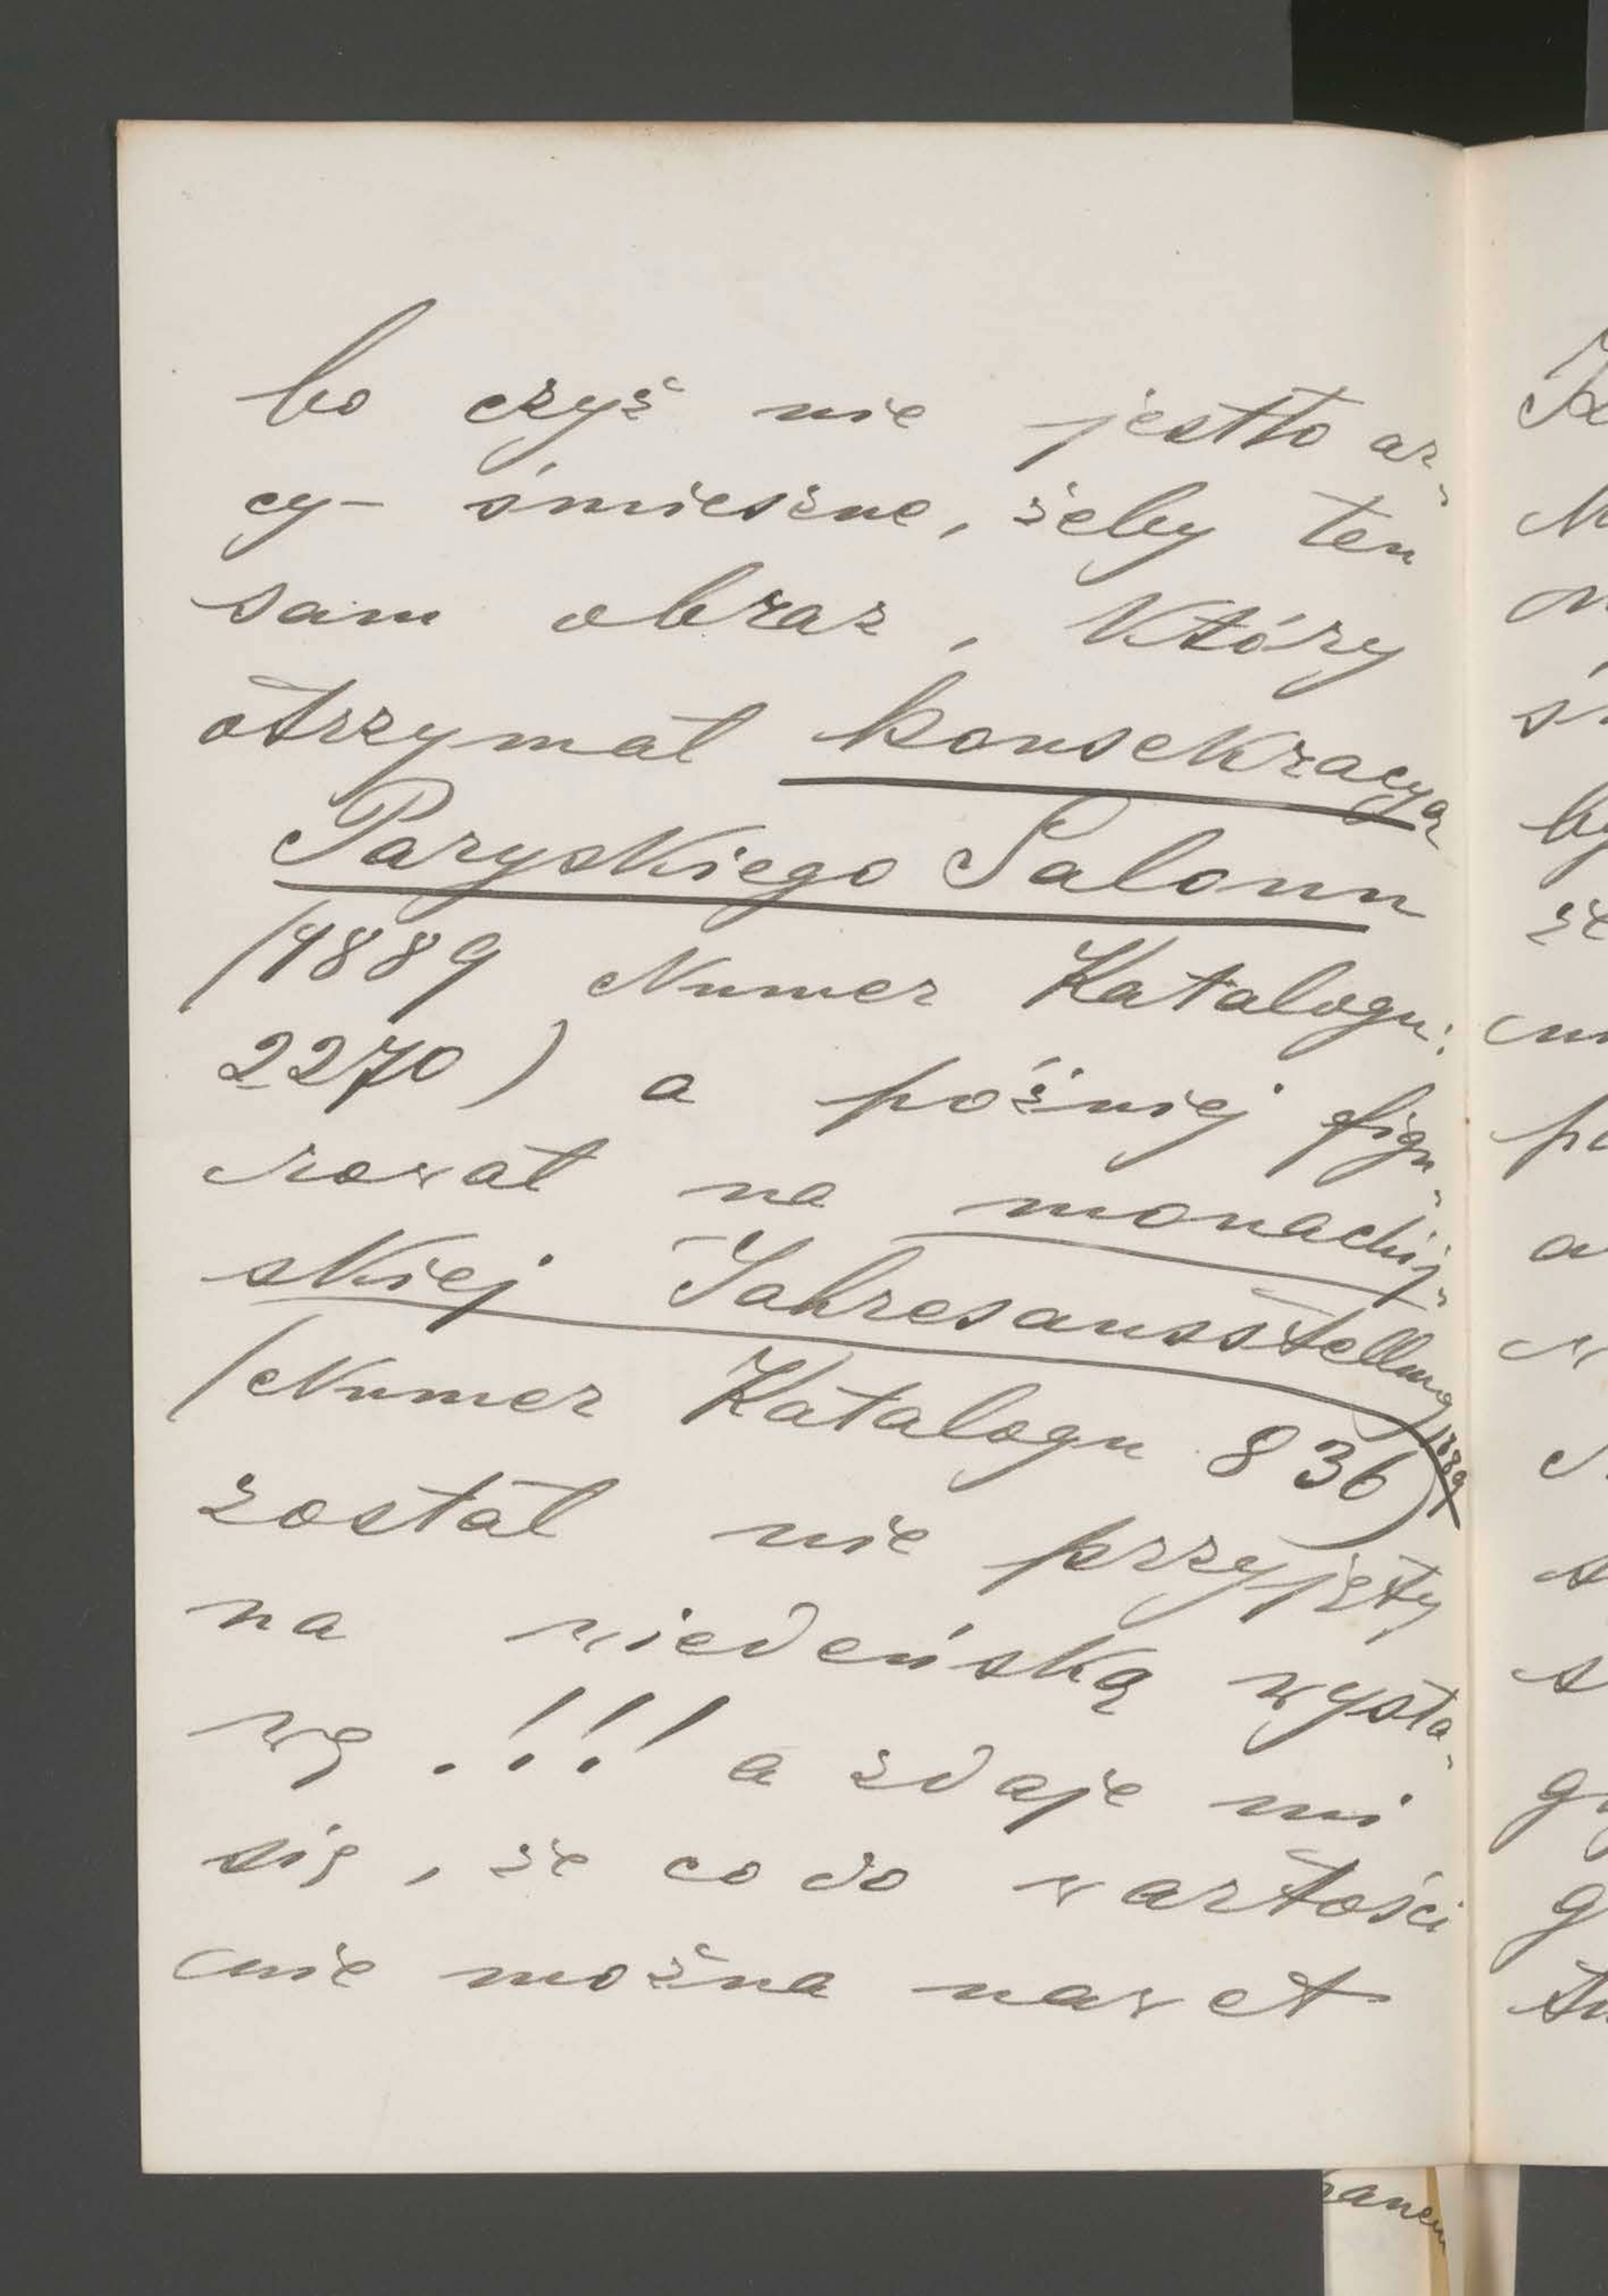 bo czyż nie jestto ar-
cy- śmieszne, żeby ten
sam obraz, który
otrzymał konsekracyą
Paryskiego Salonu
(1889 Numer Katalogu:
2270) a poźniej figu-
rował na monachij-
skiej Jahresausstellung 1889
(Numer Katalogu 836)
został nie przyjęty
na wiedeńską wysta-
wę.!!! a zdaje mi
się, że co do wartości
nie można nawet